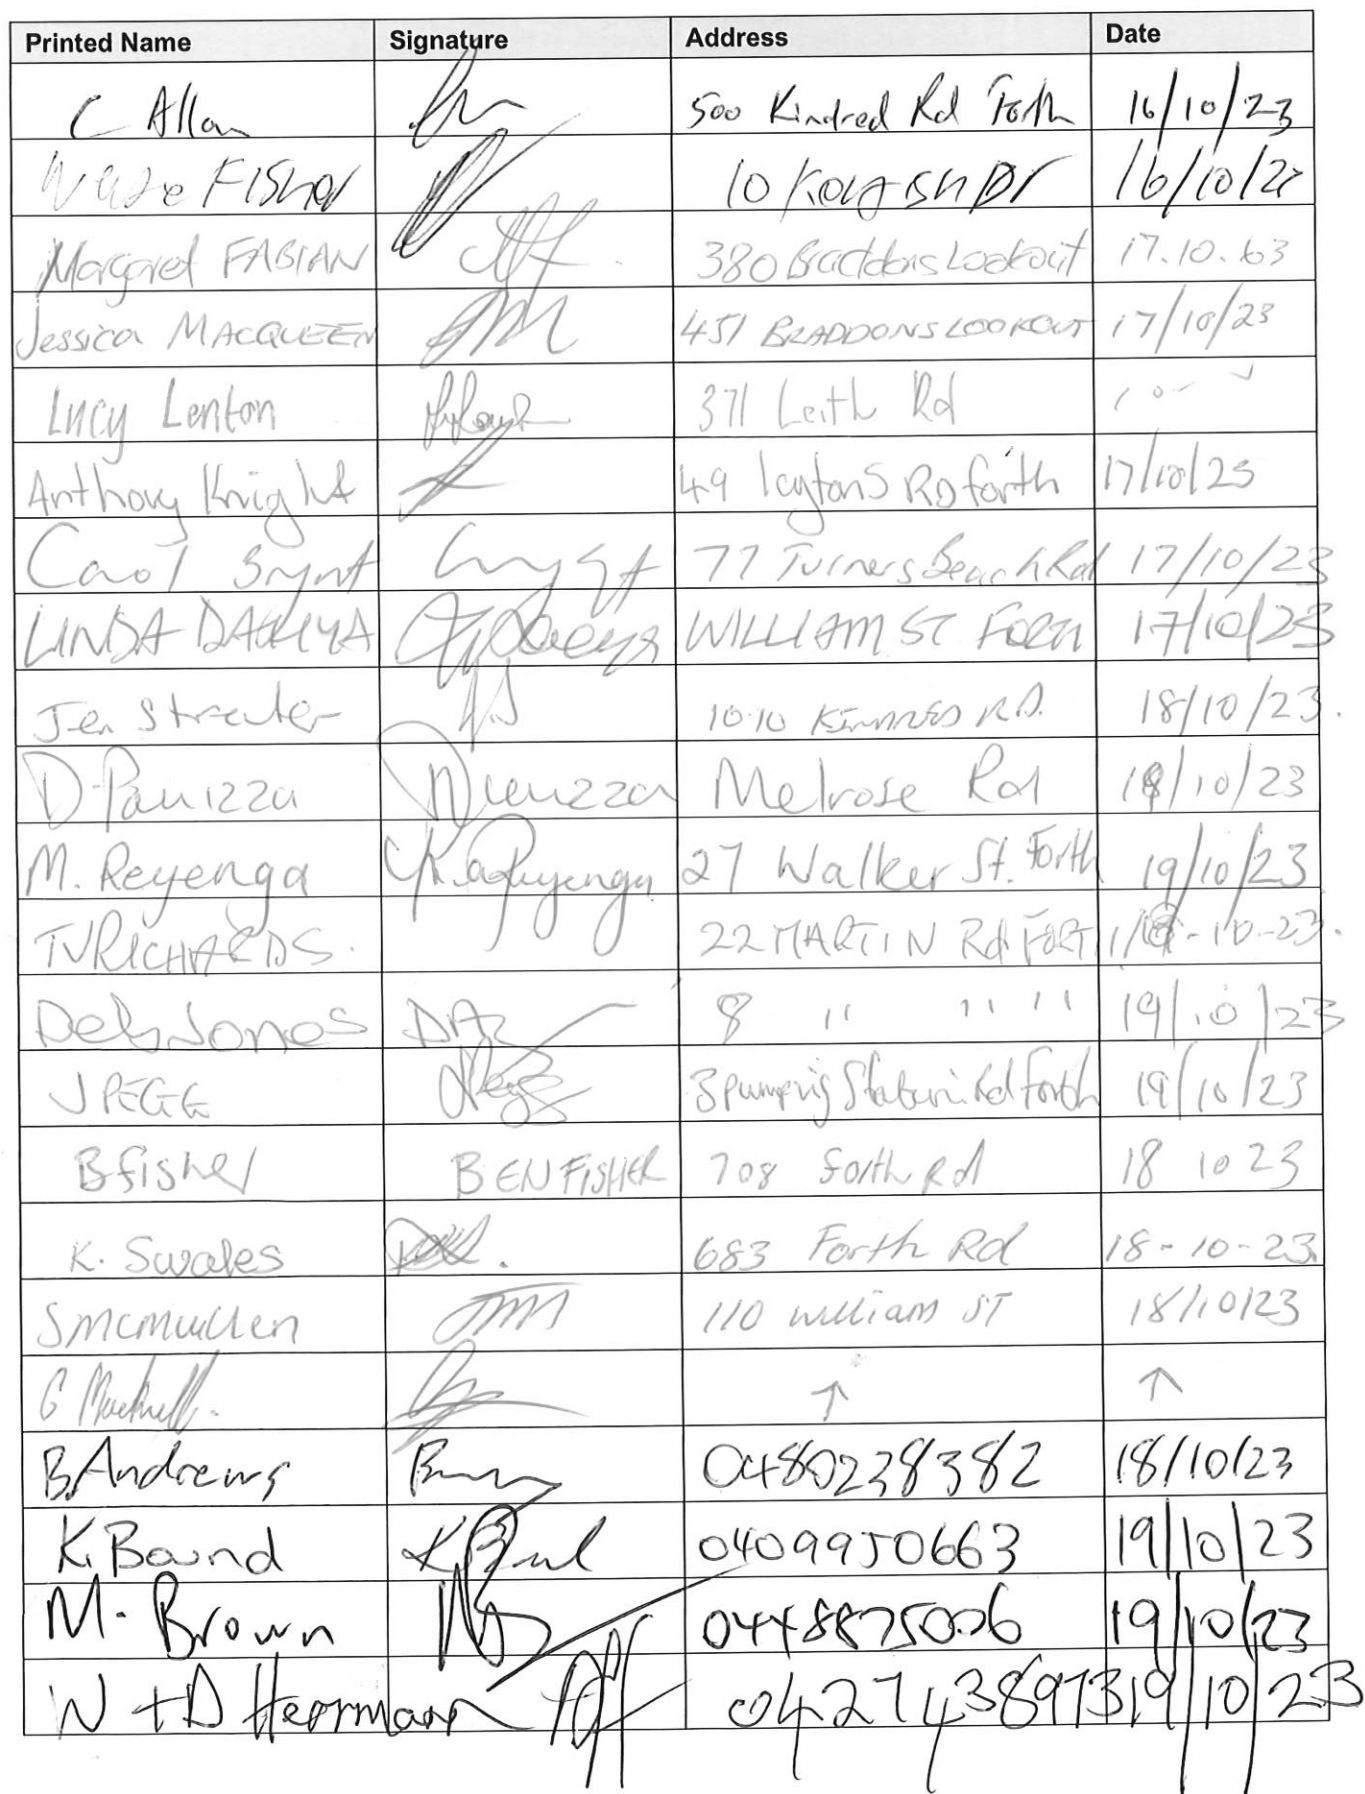 Printed Name Signature Address Date
C Allan 500 Kindred Rd Forth 16/10/23
Wade Fisher 10 Dr 16/10/23
Margaret FABIAN 380 Braddons Lookout 17.10.63
Jessica MACQUEEN 451 BRADDONS LOOKOUT 17/10/23
Lucy Lenton 371 Leith Rd
Anthony Knight 49 leytons RD forth 17/10/23
Carol 77 Turners Beach Rd 17/10/23
LINDA WILLIAM ST FORTH 17/10/23
Jen Streater 1010 KINDRED RD. 18/10/23.
D Panizza Melrose Rd 18/10/23
M. Reyenga 27 Walker St. Forth 19/10/23
TV RICHARDS. 22 MARTIN Rd FORTH -10-23.
Deb Jones 8 " " " 19/10/23
J PEGG 3 pumping Station Rd Forth 19/10/23
B fisher BEN FISHER 708 forth Rd 18 10 23
K. Swales 683 Forth Rd 18-10-23
S mcmullen 110 william ST 18/10/23
G ↑ ↑
B. Andrews 0480238382 18/10/23
K. Bound 0409950663 19/10/23
M. Brown 19/10/23
W + D Herrmann 0427438973 19/10/23